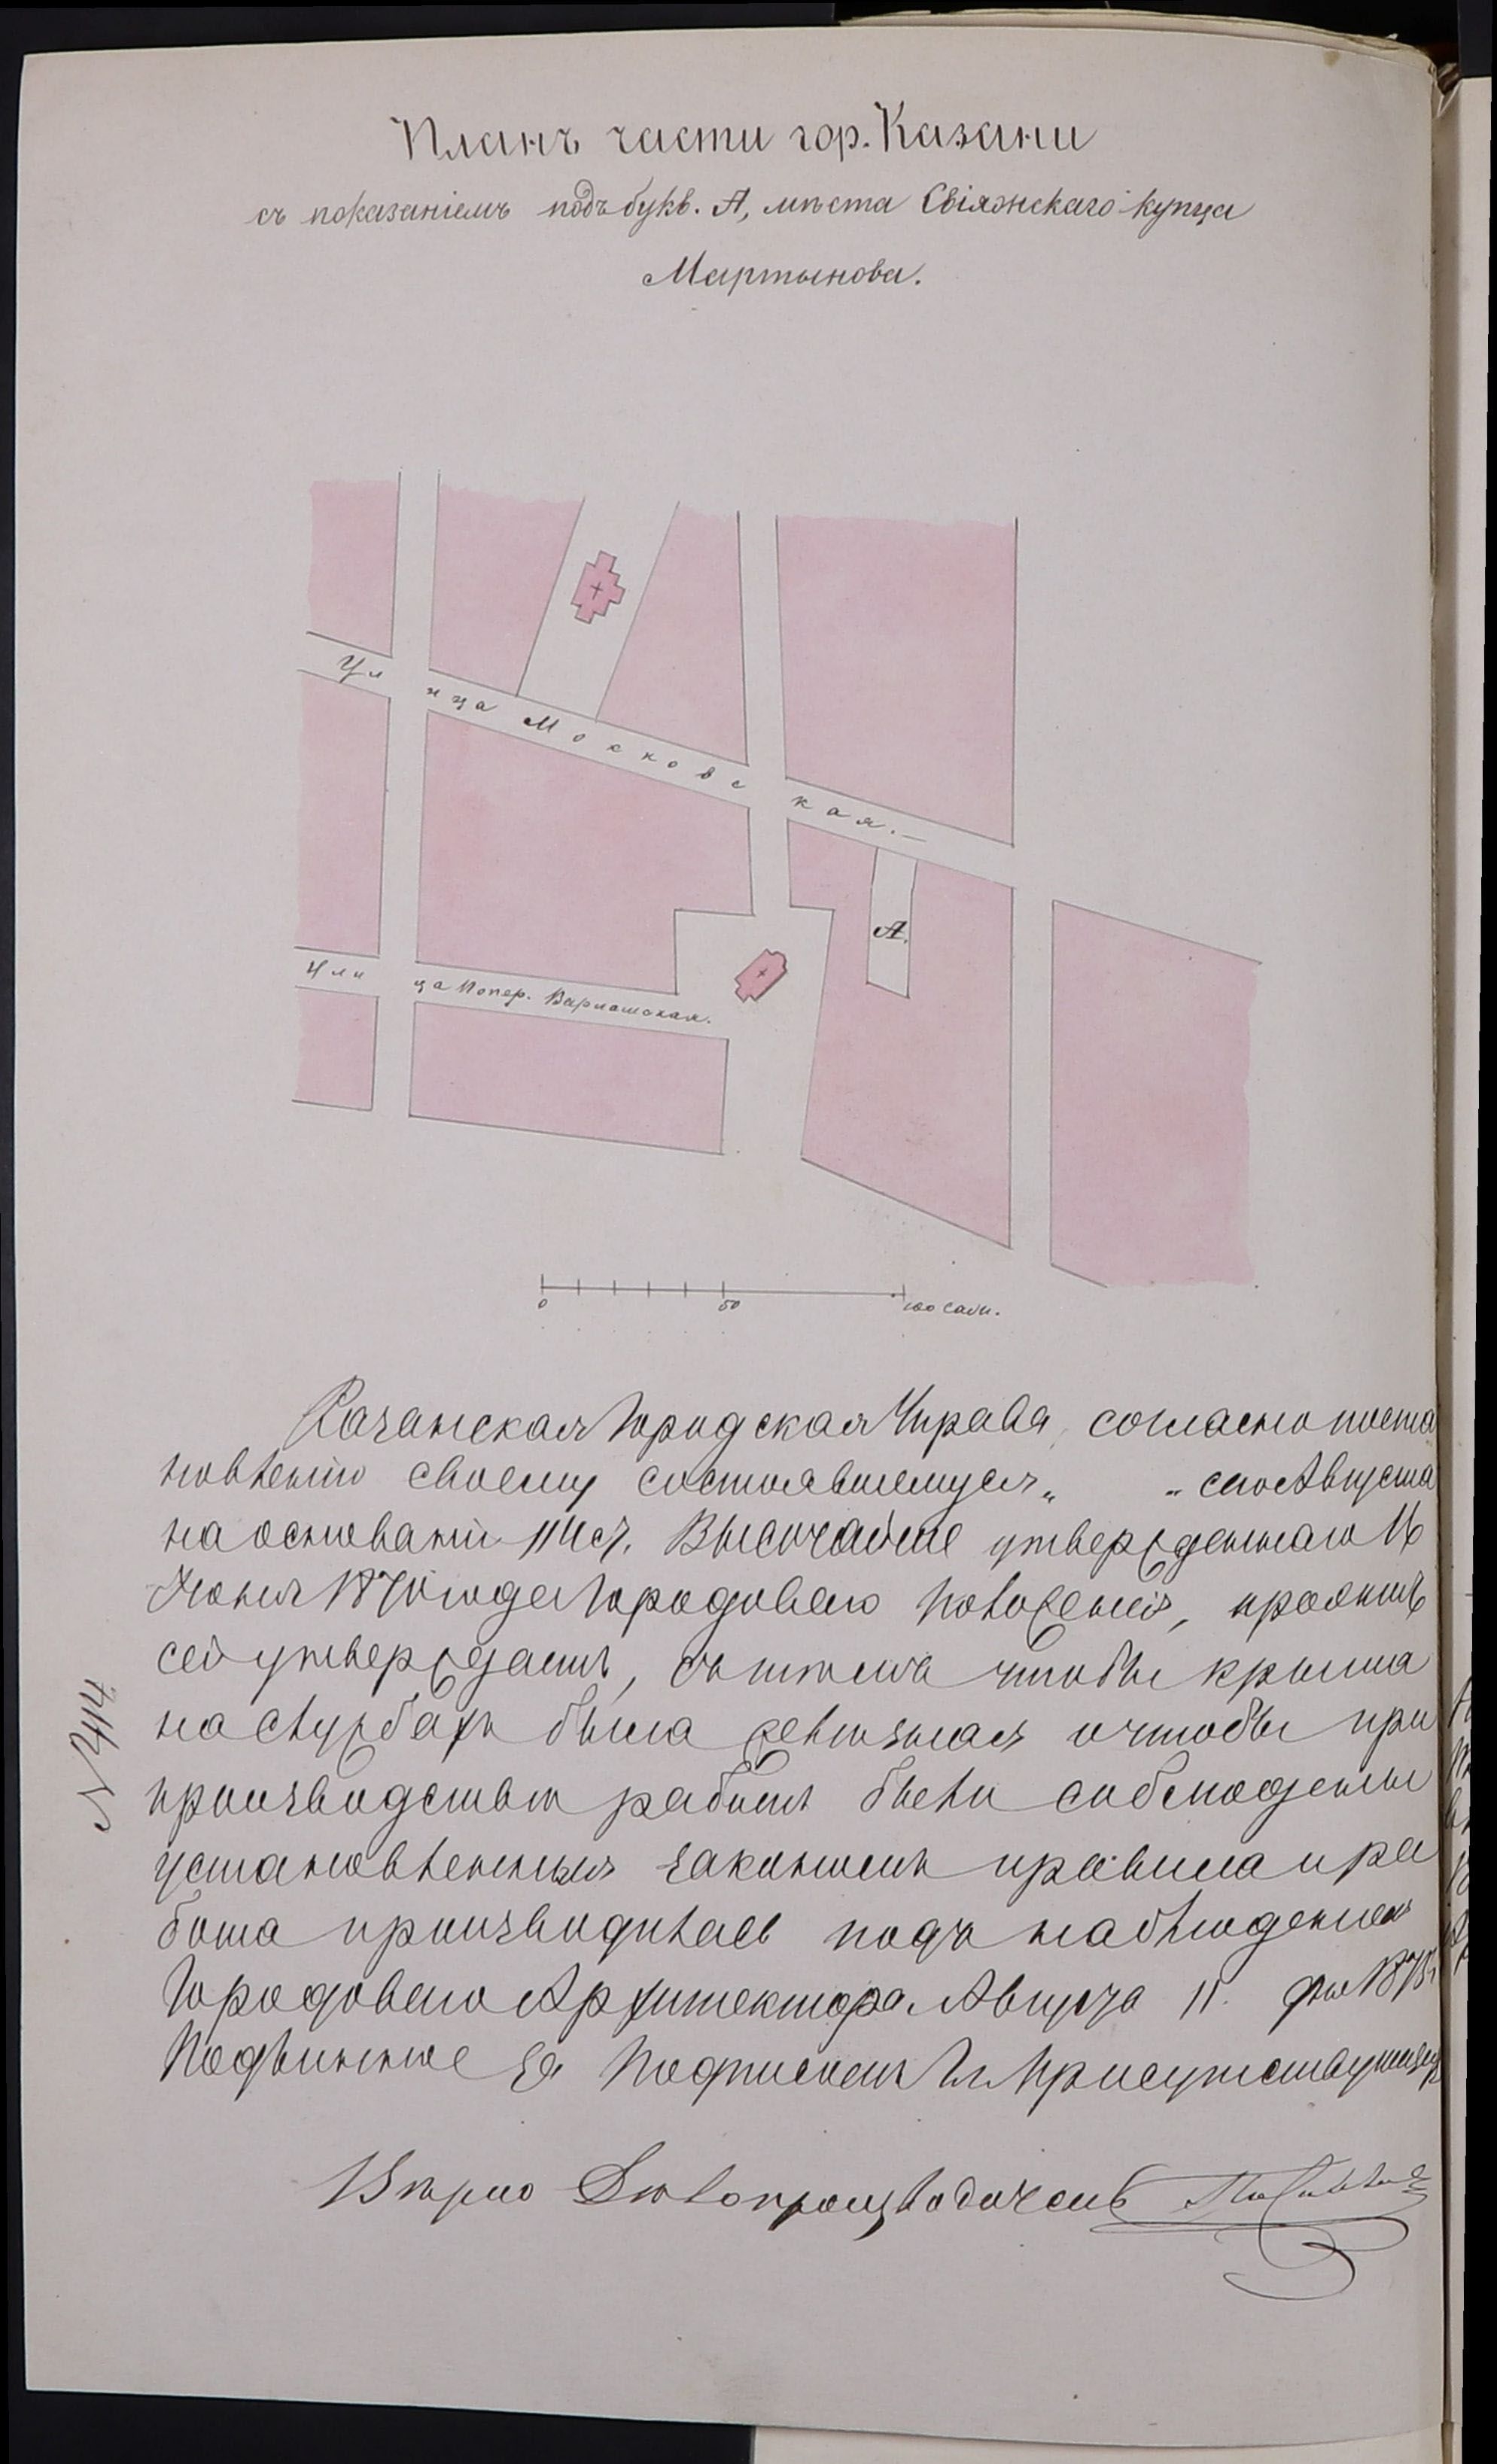 Планъ части гор. Казани
съ показаніемъ подъ букв. А, мѣста Свіяжскаго купца
Мартынова.
Улица Московская.
А.
Улица Попер. Варламская.
0 50 100 саж.
Казанская Городская Управа, согласно поста
новленію своему состоявшемуся „ „ сего Августа
на основаніи 114 ст. Высочайше утвержденнаго 16
Іюня 1870 года Городоваго Положенія, проэктъ
сей утверждаетъ, съ тѣмъ чтобы крыша
на службахъ была желѣзная и чтобы при
производствѣ работъ были соблюдены
установленныя закономъ правила и ра
бота производилась подъ наблюденіемъ
Городоваго Архитектора. Августа 11 дня 187
Подлинное за подписомъ Гг. Присутствующихъ
Вѣрно Дѣлопроизводитель
№ 414